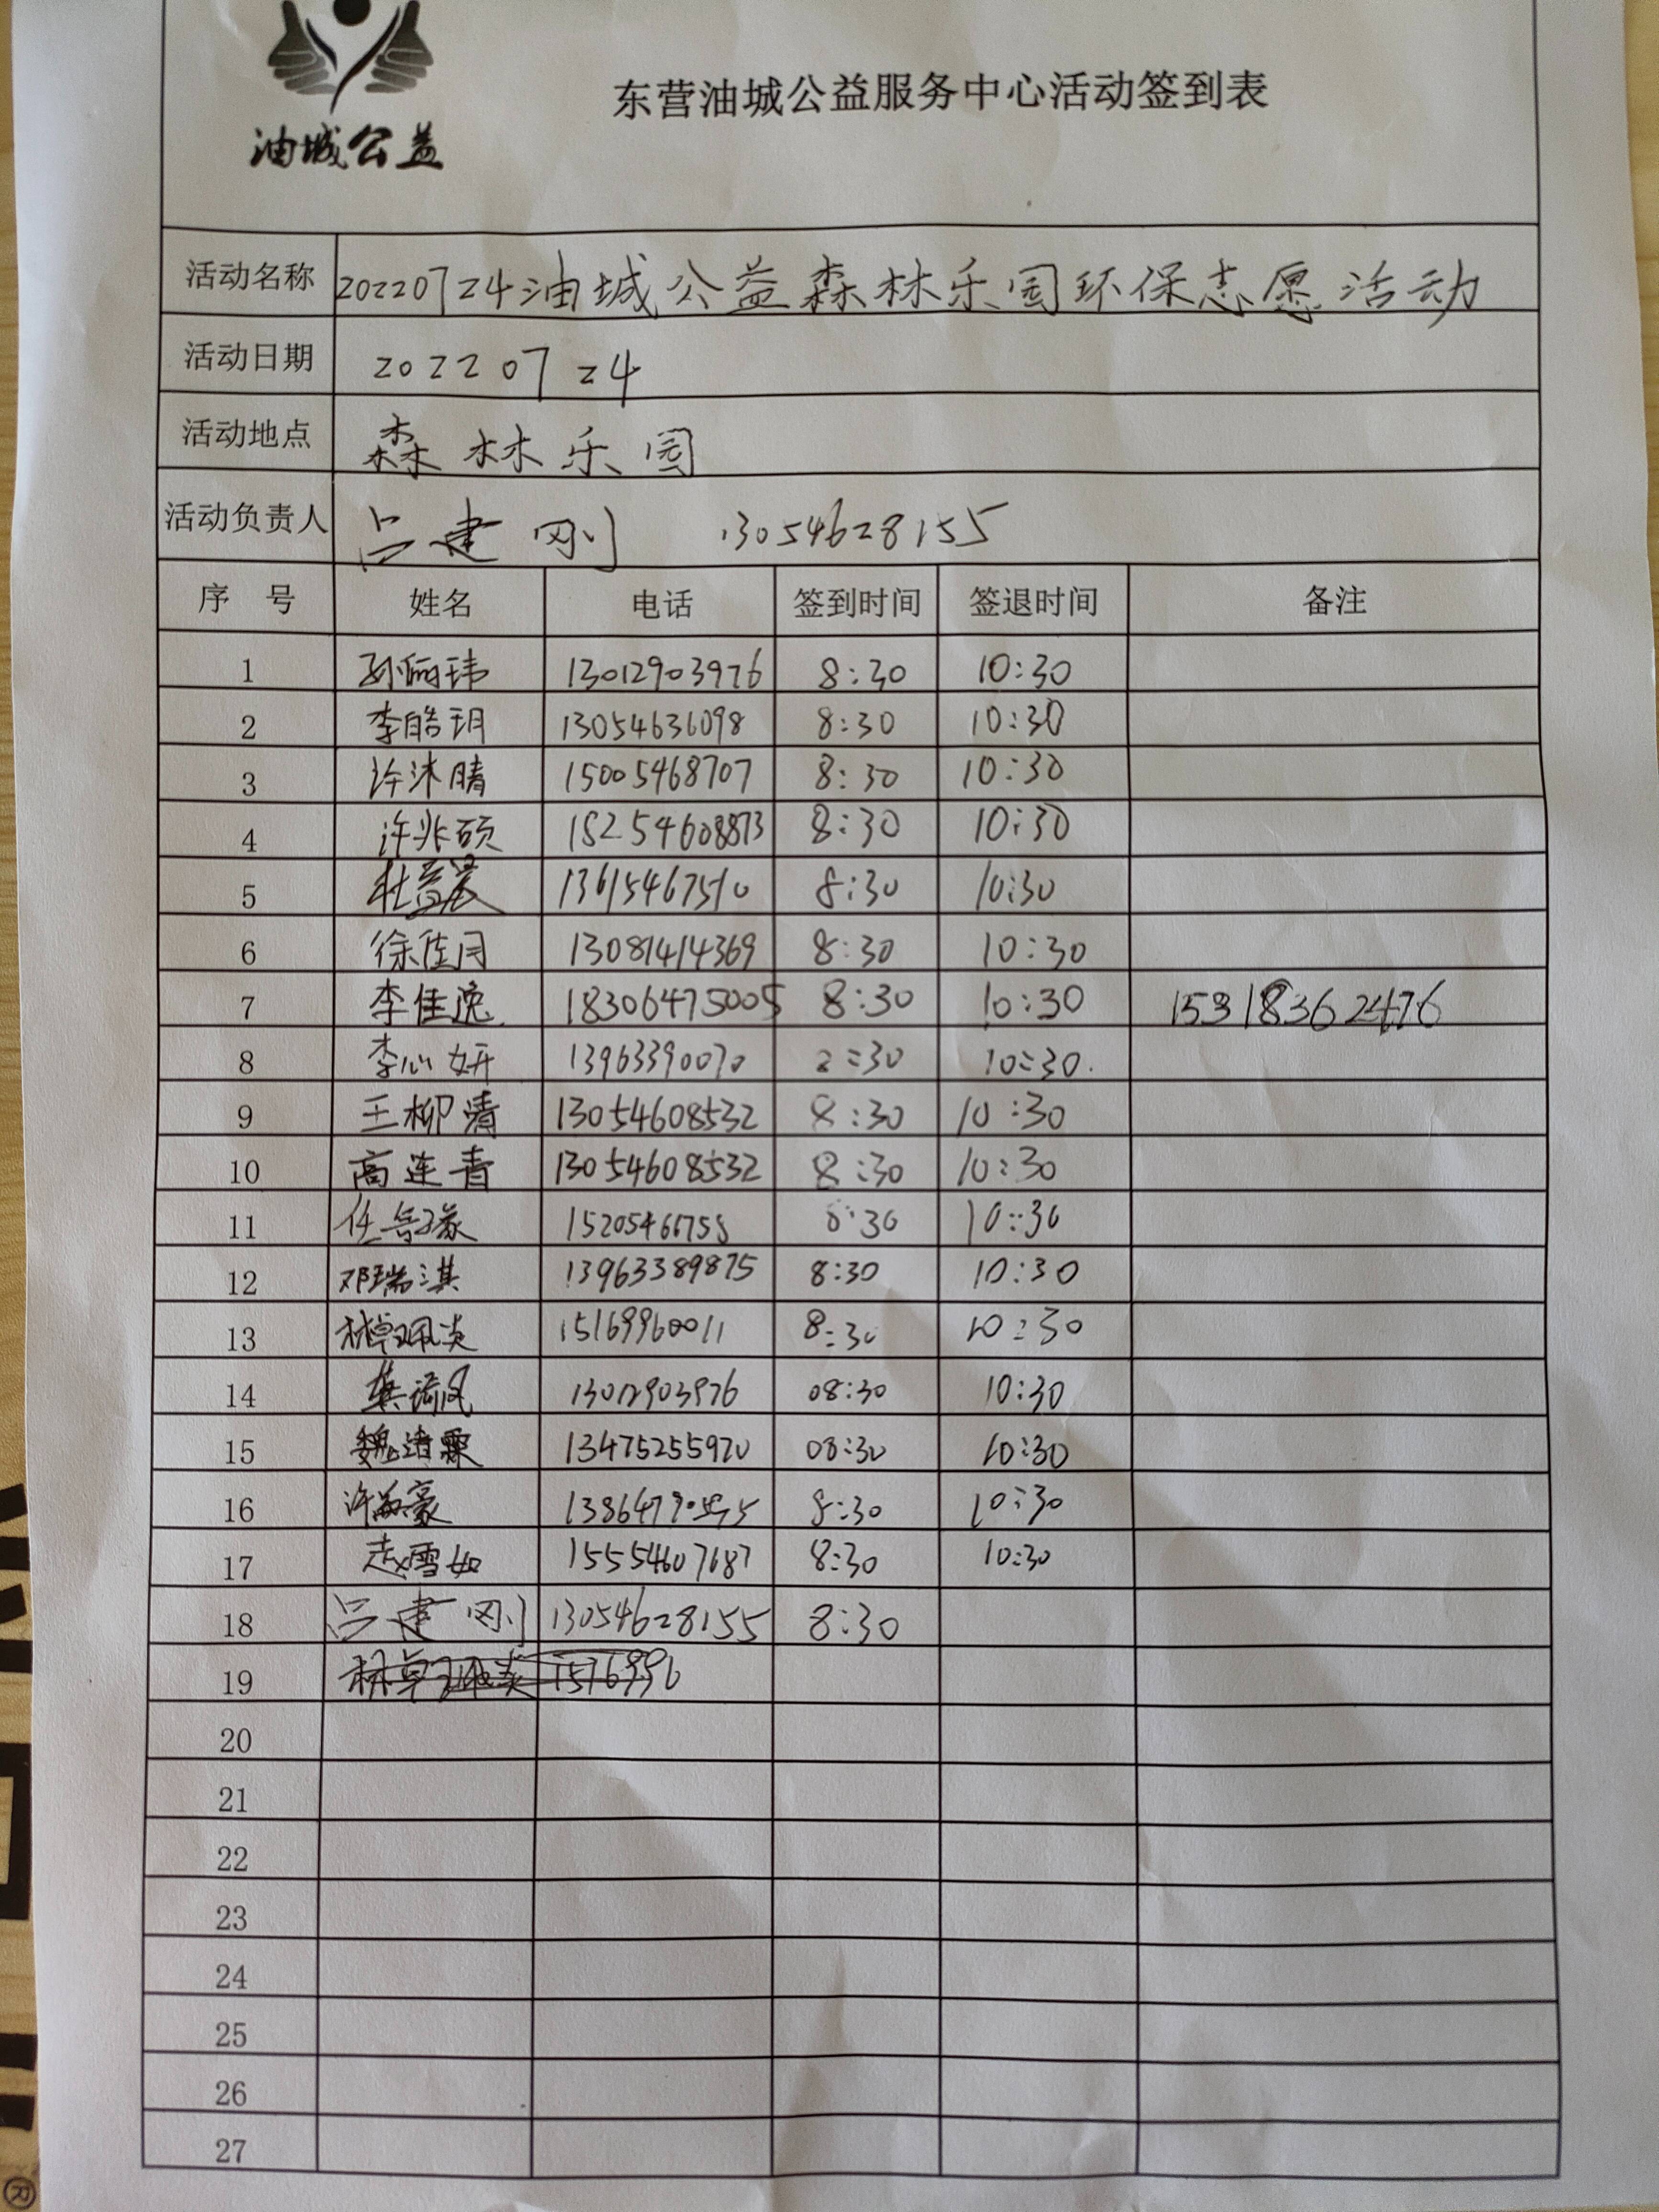 油城公益
东营油城公益服务中心活动签到表
活动名称 20220724油城公益森林乐园环保志愿活动
活动日期 20220724
活动地点 森林乐园
活动负责人 吕建刚 13054628155
序号 姓名 电话 签到时间 签退时间 备注
1 孙丽玮 13012903976 8:30 10:30
2 李皓玥 13054636098 8:30 10:30
3 许沐晴 15005468707 8:30 10:30
4 许兆硕 15254608873 8:30 10:30
5 杜 13615467510 8:30 10:30
6 徐佳月 13081414369 8:30 10:30
7 李佳逸 18306475005 8:30 10:30 15318362476
8 李心妍 13963390070 10:30
9 王柳清 13054608532 8:30 10:30
10 高连青 13054608532 8:30 10:30
11 任 8:30 10:30
12 邓瑞淇 13963389875 8:30 10:30
13 林卓珮炎 15169960011 8:30 10:30
14 13012903976 08:30 10:30
15 魏清霖 13475255970 08:30 10:30
16 许 豪 8:30 10:30
17 赵雪如 15554607687 8:30 10:30
18 吕建刚 13054628155 8:30
19 林卓珮炎 1516996
20
21
22
23
24
25
26
27